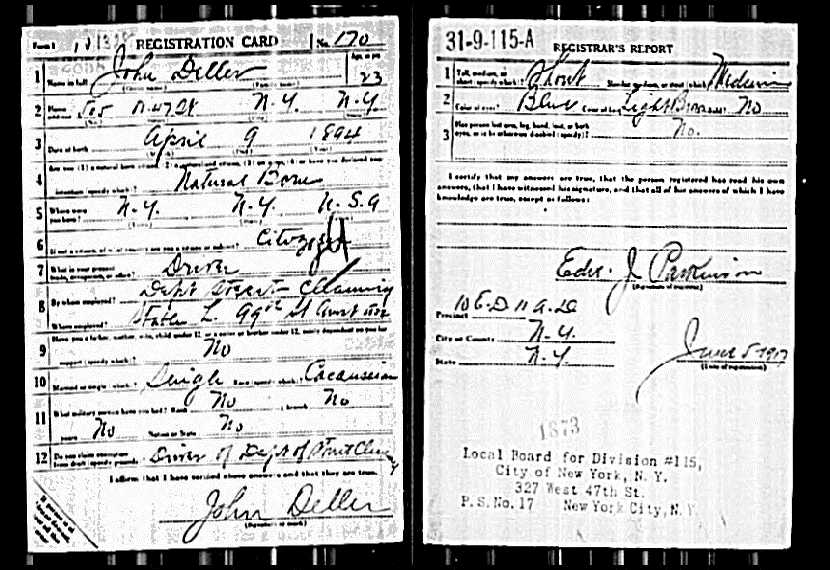 Form 1 REGISTRATION CARD No. 170
1 Name in full John Deller Age, in yrs. 23
(Given name) (Family name)
2 Home address 505 W. 47 St N.Y. N.Y.
3 Date of birth April 9 1894
4 Natural Born
5 Where were you born? N.Y. N.Y. U.S.A
6 Citizen
7 What is your present trade, occupation, or office? Driver
8 By whom employed? Dept Street Cleaning
Where employed? Stable L. 99th St
9 Have you a father, mother, wife, child under 12, or a sister or brother under 12, solely dependent on you for
support (specify which)? No
10 Married or single (which)? Single Race (specify which)? Caucausian
11 What military service have you had? Rank No branch No
years No Nation or State No
12 Do you claim exemption from draft (specify grounds)? Driver of Dept of
I affirm that I have verified above answers and that they are true.
John Deller
(Signature or mark)
31-9-115-A REGISTRAR'S REPORT
1 Tall, medium, or short (specify which)? Short Slender, medium, or stout (which)? Medium
2 Color of eyes? Blue Color of hair? Light Brown Bald? No
3 Has person lost arm, leg, hand, foot, or both eyes, or is he otherwise disabled (specify)? No.
I certify that my answers are true, that the person registered has read his own
answers, that I have witnessed his signature, and that all of his answers of which I have
knowledge are true, except as follows:
Edw. J. Parkinson
(Signature of registrar)
Precinct 10 E.D. 11 A.D
City or County N.Y.
State N.Y.
June 5-1917
(Date of registration)
1873
Local Board for Division #115,
City of New York, N. Y.
327 West 47th St.
P.S.No. 17 New York City, N.Y.